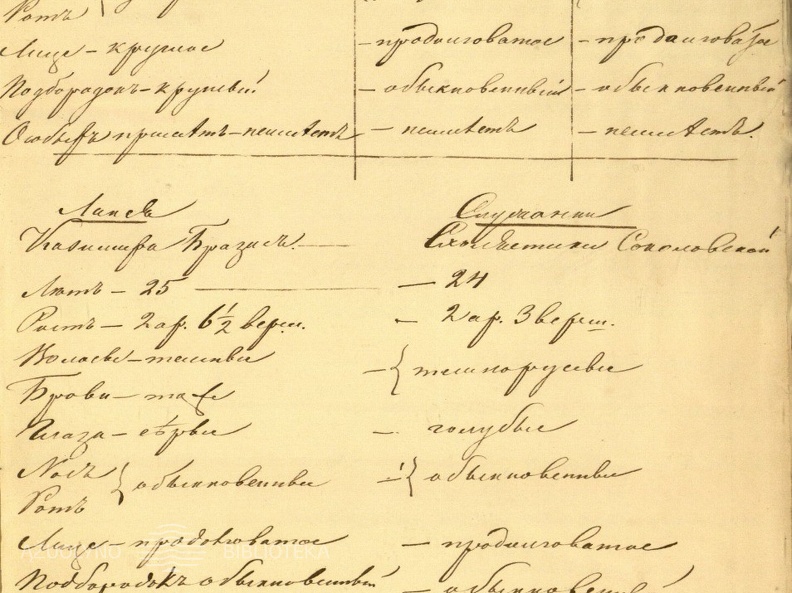 Ротъ
Лице – круглое – продолговатое – продолговатое
Подбородокъ – круглый – обыкновенный – обыкновенный
Особыхъ приметъ – неимѣетъ – неимѣетъ – неимѣетъ.
Казимира
Сколастики Соколовской
Лѣтъ – 25 — 24
Ростъ – 2 ар. 6 1/2 верш. – 2 ар. 3 верш.
Волосы – темные – { темнорусые
Брови – такѣ
Глаза – сѣрые – голубые
Носъ } обыкновенные – { обыкновенные
Ротъ
Лице – продолговатое – продолговатое
Подбородокъ обыкновенный – обыкновенный
BIBLIOTEKA